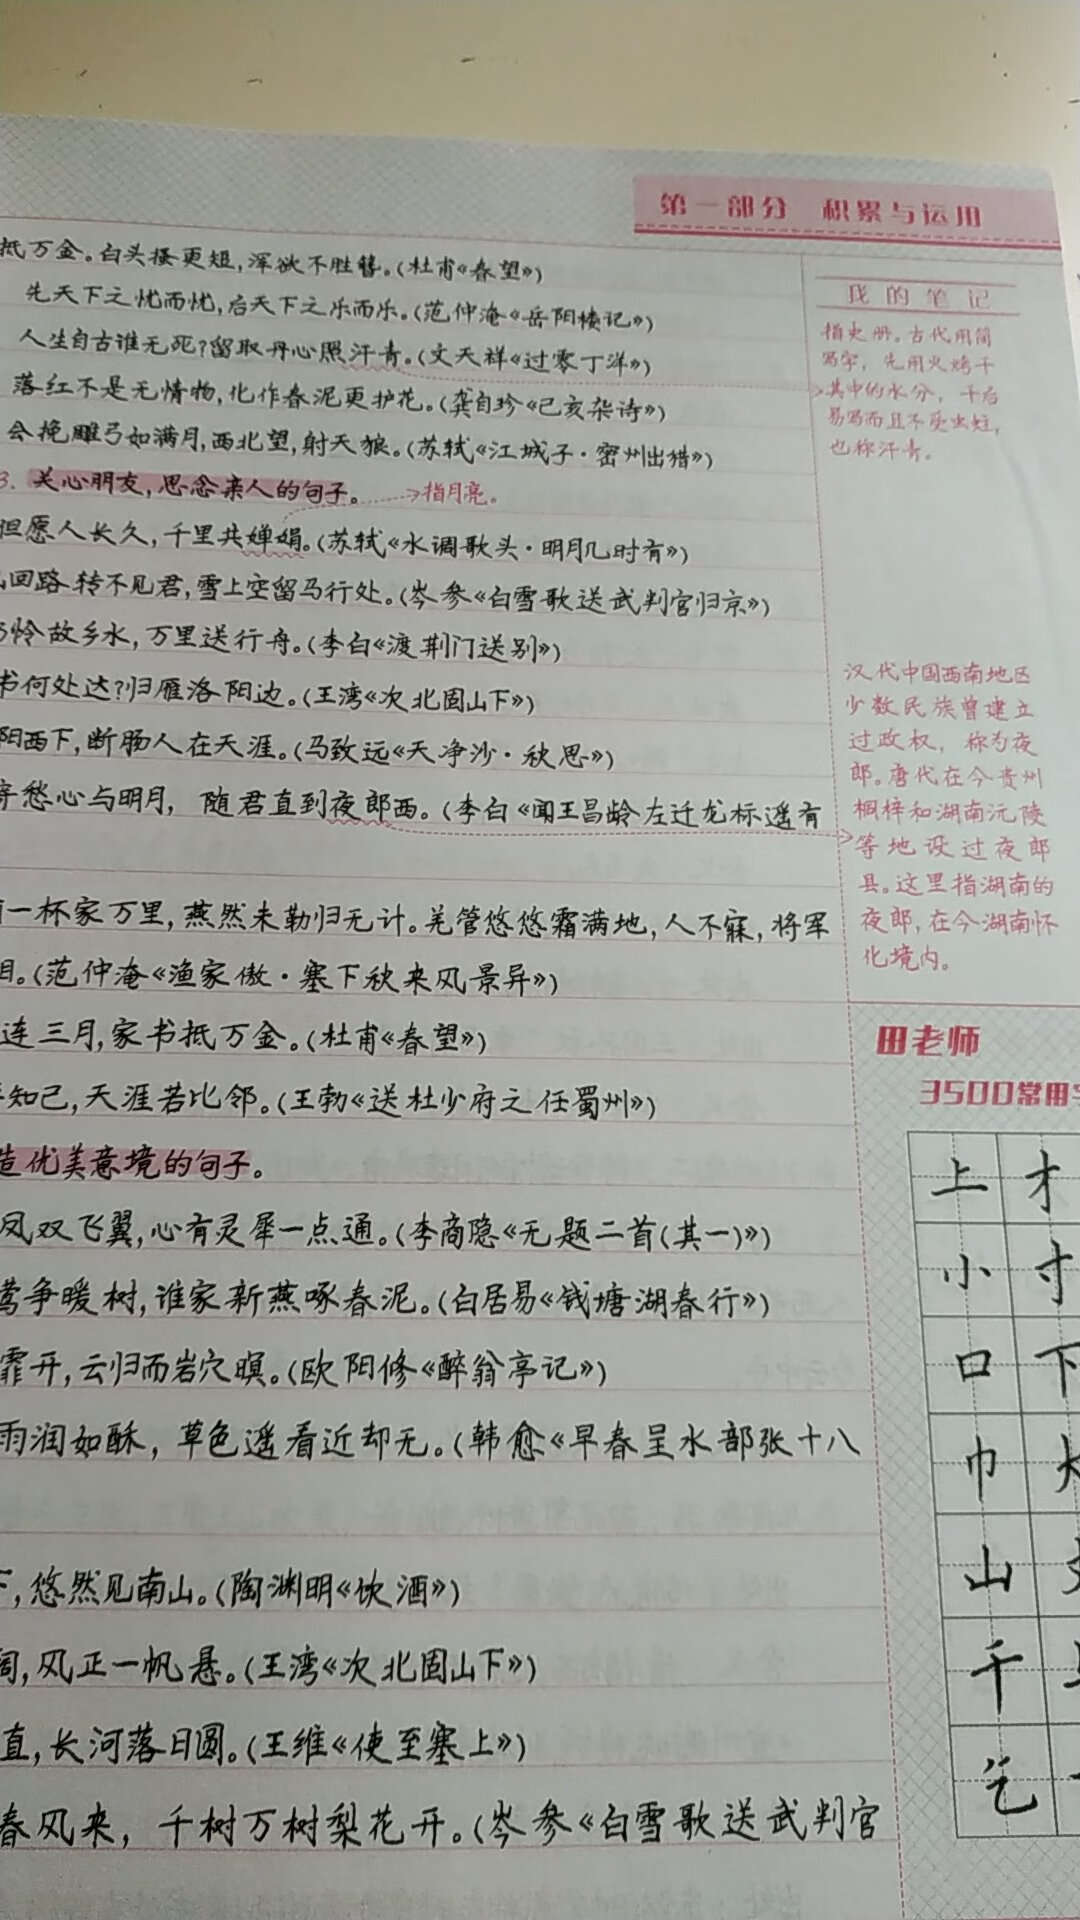 第一部分 积累与运用
抵万金。白头搔更短,浑欲不胜簪。(杜甫《春望》)
先天下之忧而忧,后天下之乐而乐。(范仲淹《岳阳楼记》)
人生自古谁无死?留取丹心照汗青。(文天祥《过零丁洋》)
落红不是无情物,化作春泥更护花。(龚自珍《己亥杂诗》)
会挽雕弓如满月,西北望,射天狼。(苏轼《江城子·密州出猎》)
3. 关心朋友,思念亲人的句子。
指月亮。
但愿人长久,千里共婵娟。(苏轼《水调歌头·明月几时有》)
回路转不见君,雪上空留马行处。(岑参《白雪歌送武判官归京》)
怜故乡水,万里送行舟。(李白《渡荆门送别》)
书何处达?归雁洛阳边。(王湾《次北固山下》)
阳西下,断肠人在天涯。(马致远《天净沙·秋思》)
愁心与明月, 随君直到夜郎西。(李白《闻王昌龄左迁龙标遥有
一杯家万里,燕然未勒归无计。羌管悠悠霜满地,人不寐,将军
。(范仲淹《渔家傲·塞下秋来风景异》)
连三月,家书抵万金。(杜甫《春望》)
知己,天涯若比邻。(王勃《送杜少府之任蜀州》)
造优美意境的句子。
凤双飞翼,心有灵犀一点通。(李商隐《无题二首(其一)》)
莺争暖树,谁家新燕啄春泥。(白居易《钱塘湖春行》)
霏开,云归而岩穴暝。(欧阳修《醉翁亭记》)
雨润如酥, 草色遥看近却无。(韩愈《早春呈水部张十八
下,悠然见南山。(陶渊明《饮酒》)
阔,风正一帆悬。(王湾《次北固山下》)
直,长河落日圆。(王维《使至塞上》)
春风来, 千树万树梨花开。(岑参《白雪歌送武判官
我的笔记
指史册。古代用简
写字, 先用火烤干
其中的水分, 干后
易写而且不受虫蛀,
也称汗青。
汉代中国西南地区
少数民族曾建立
过政权, 称为夜
郎。唐代在今贵州
桐梓和湖南沅陵
等地设过夜郎
县。这里指湖南的
夜郎,在今湖南怀
化境内。
田老师
3500常用
上 才
小 寸
口 下
巾
山
千
乞